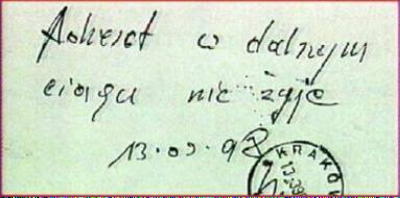 Adresat w dalszym
ciągu nie żyje
13.09.92
KRAKÓW